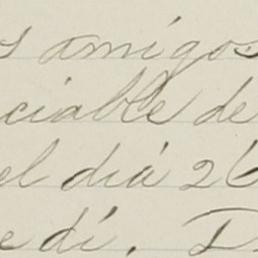 s amigos
ciable de
el diá 26
e dí. D